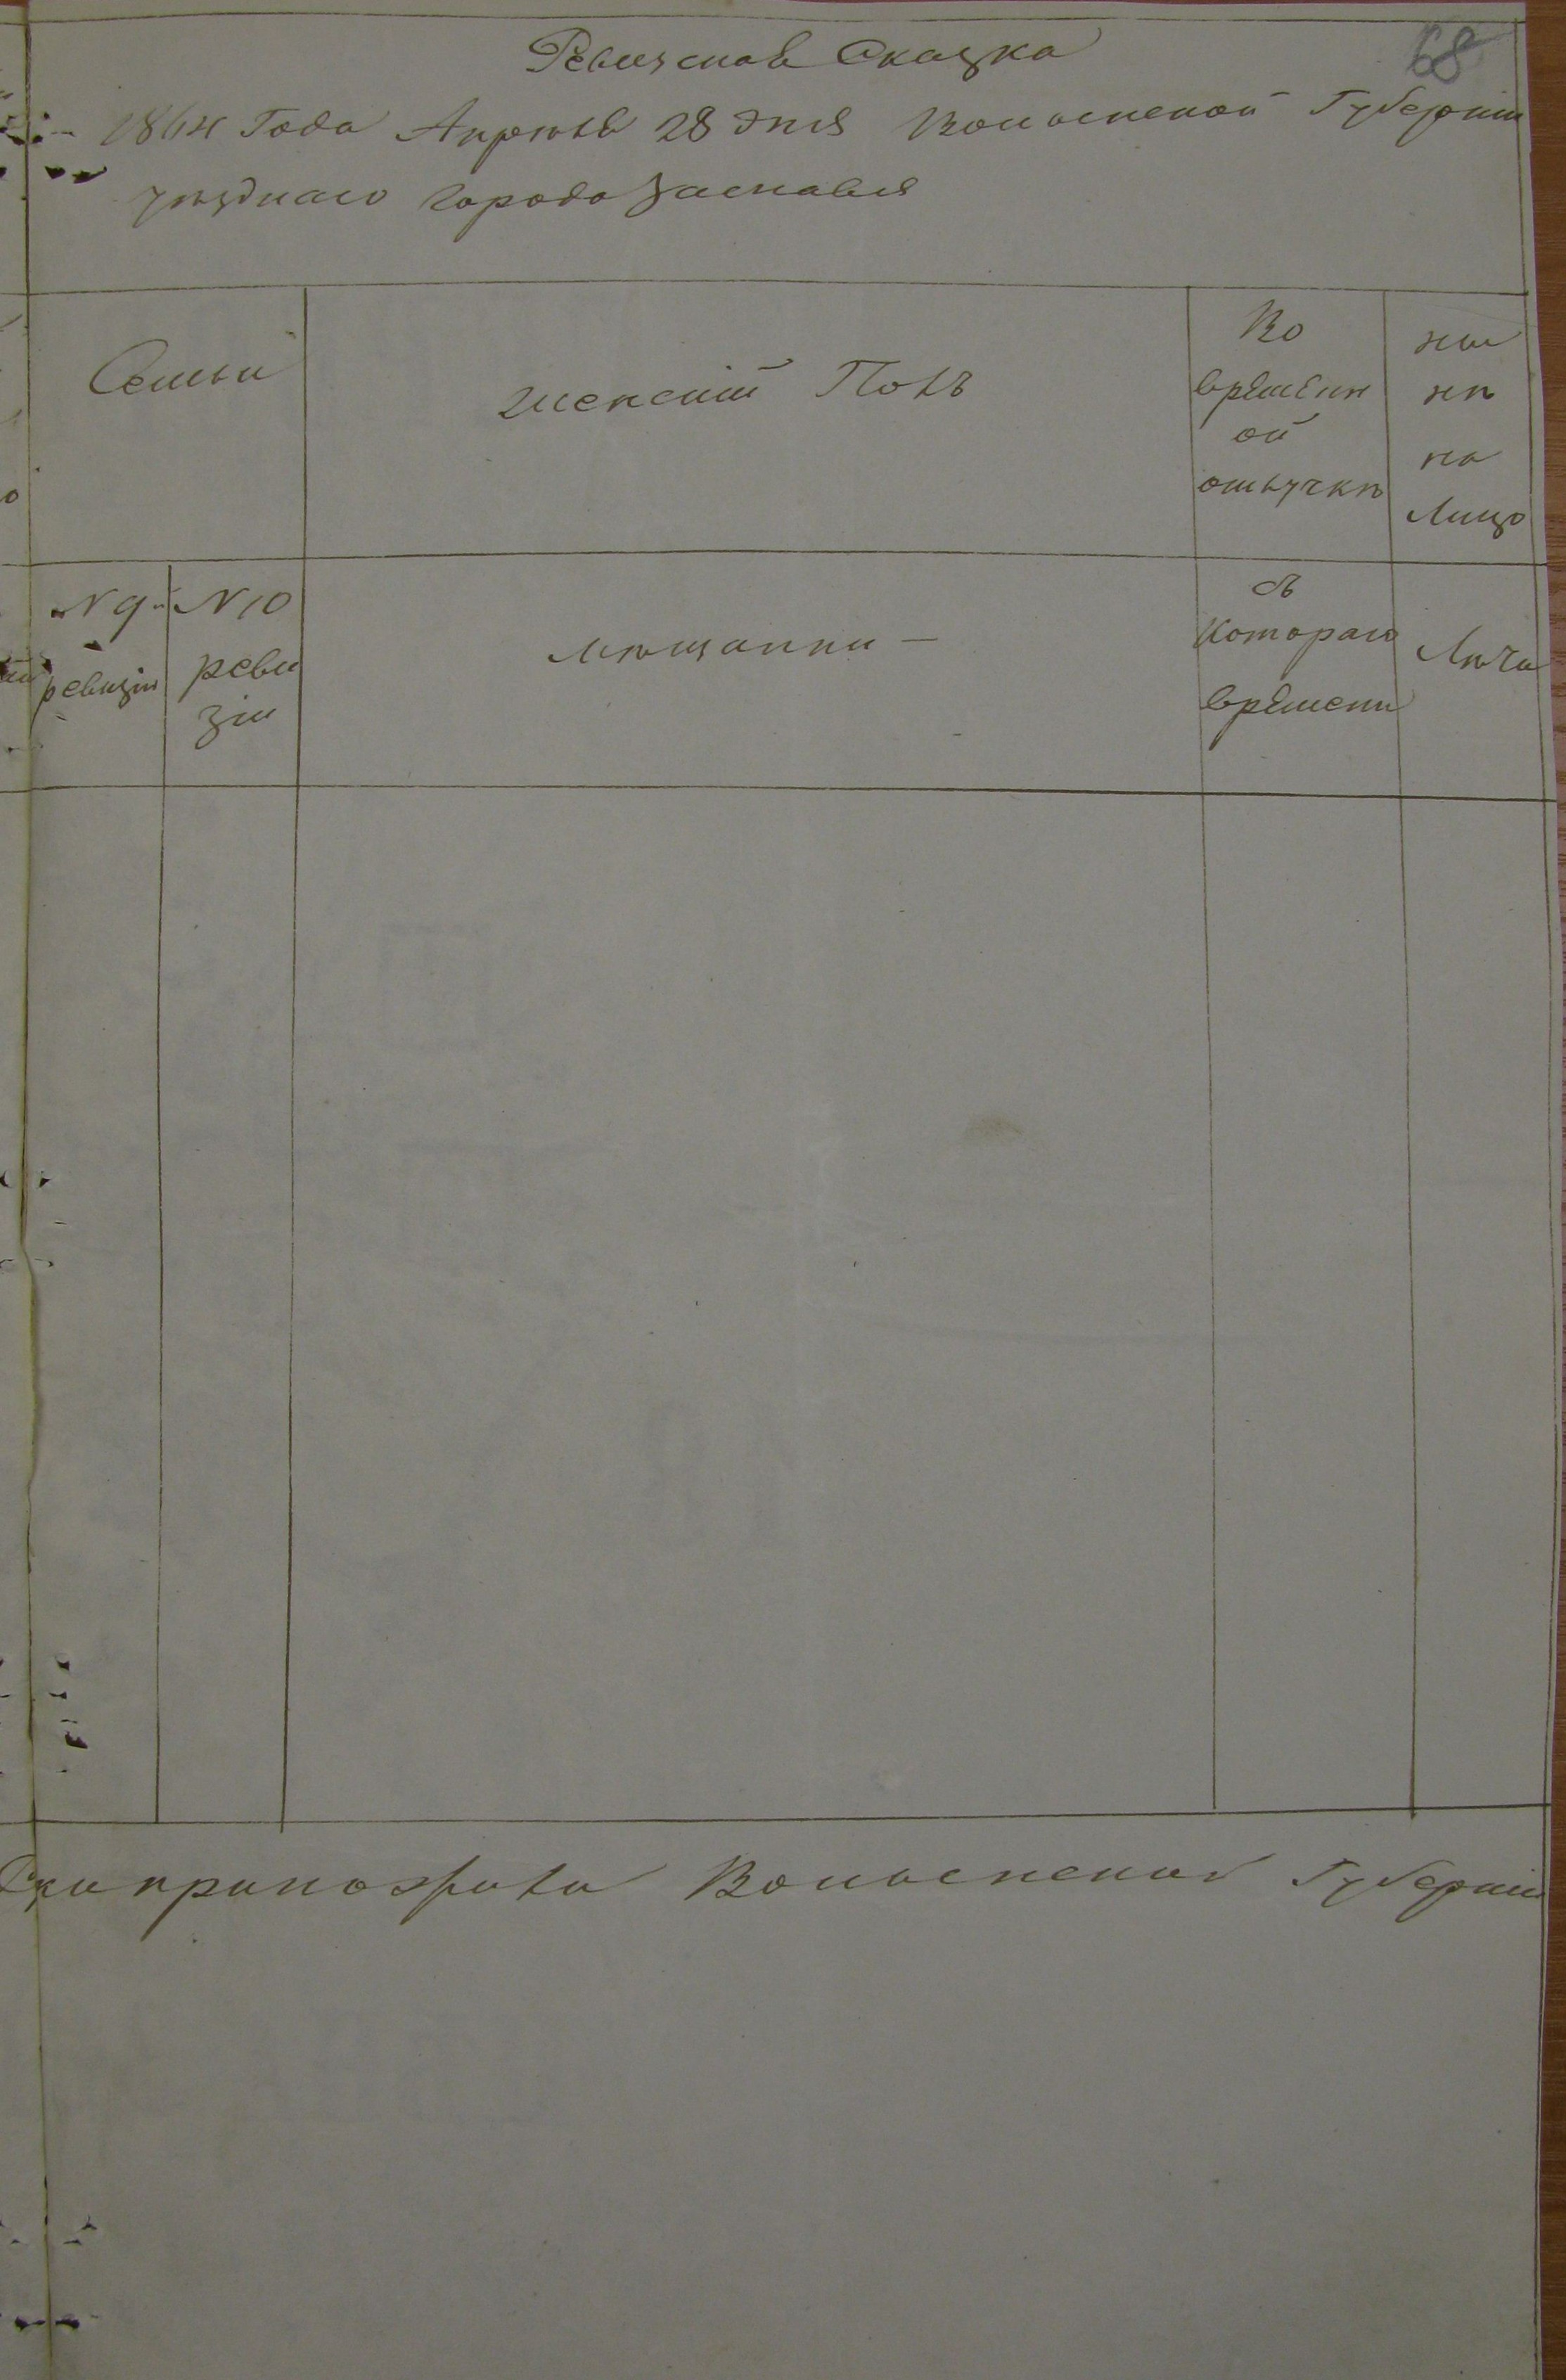 68
Ревизская Сказка
1864 Года Апреля 28 дня Волынской Губерніи
уѣзднаго города Заславля
Семьи
женскій Полъ
Во
временн
ой
отлучкѣ
ны
нѣ
на
Лицо
N 9й
ревизіи
N 10
реви
зіи
мѣщанки —
съ
котораго
времени
Лѣта
приложила Волынской Губерніи